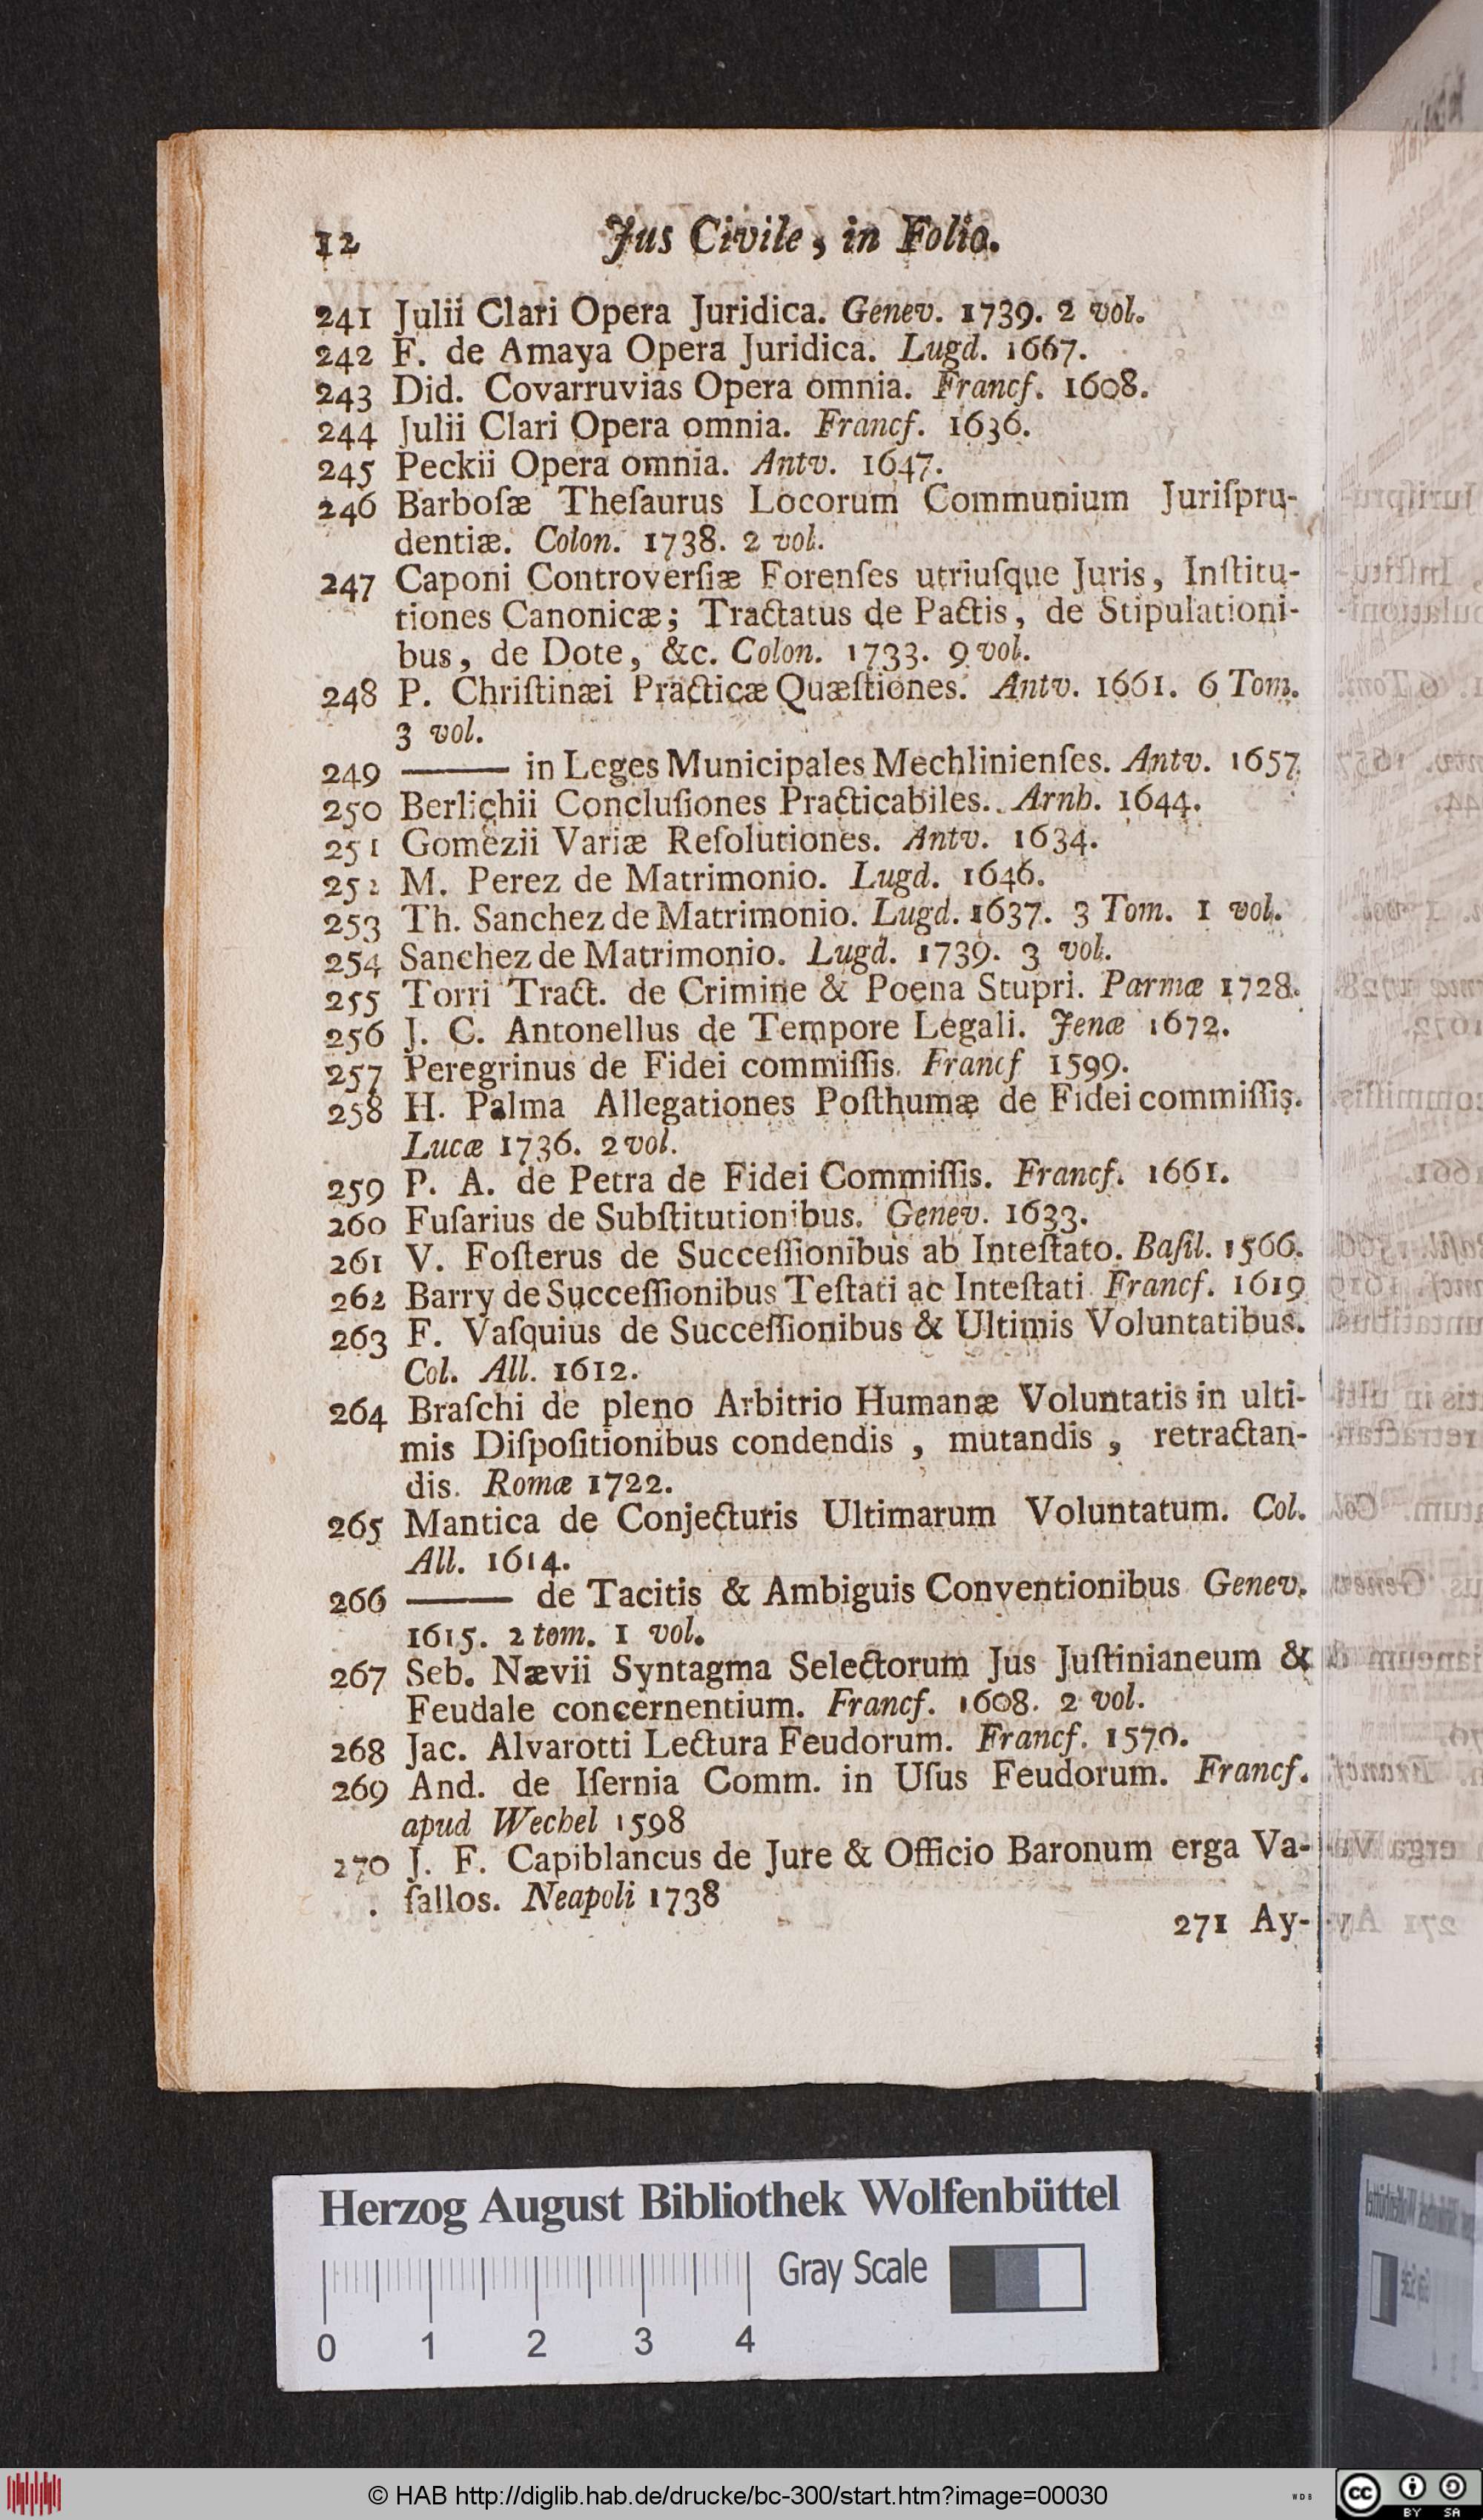 12 Jus Civile, in Folio.
241 Julii Clari Opera Juridica. Genev. 1739. 2 vol.
242 F. de Amaya Opera Juridica. Lugd. 1667.
243 Did. Covarruvias Opera omnia. Francf. 1608.
244 Julii Clari Opera omnia. Francf. 1636.
245 Peckii Opera omnia. Antv. 1647.
246 Barboſæ Theſaurus Locorum Communium Juriſpru-
dentiæ. Colon. 1738. 2 vol.
247 Caponi Controverſiæ Forenſes utriuſque Juris, Inſtitu-
tiones Canonicæ; Tractatus de Pactis, de Stipulationi-
bus, de Dote, &c. Colon. 1733. 9 vol.
248 P. Chriſtinæi Practicæ Quæſtiones. Antv. 1661. 6 Tom.
3 vol.
249 ——— in Leges Municipales Mechlinienſes. Antv. 1657.
250 Berlichii Concluſiones Practicabiles. Arnh. 1644.
251 Gomezii Variæ Reſolutiones. Antv. 1634.
252 M. Perez de Matrimonio. Lugd. 1646.
253 Th. Sanchez de Matrimonio. Lugd. 1637. 3 Tom. 1 vol.
254 Sanchez de Matrimonio. Lugd. 1739. 3 vol.
255 Torri Tract. de Crimine & Poena Stupri. Parmæ 1728.
256 J. C. Antonellus de Tempore Legali. Jenæ 1672.
257 Peregrinus de Fidei commiſſis. Francf 1599.
258 H. Palma Allegationes Poſthumæ de Fidei commiſſis.
Lucæ 1736. 2 vol.
259 P. A. de Petra de Fidei Commiſſis. Francf. 1661.
260 Fuſarius de Subſtitutionibus. Genev. 1633.
261 V. Foſterus de Succeſſionibus ab Inteſtato. Baſil. 1566.
262 Barry de Succeſſionibus Teſtati ac Inteſtati Francf. 1619
263 F. Vaſquius de Succeſſionibus & Ultimis Voluntatibus.
Col. All. 1612.
264 Braſchi de pleno Arbitrio Humanæ Voluntatis in ulti-
mis Diſpoſitionibus condendis, mutandis, retractan-
dis. Romæ 1722.
265 Mantica de Conjecturis Ultimarum Voluntatum. Col.
All. 1614.
266 ——— de Tacitis & Ambiguis Conventionibus Genev.
1615. 2 tom. 1 vol.
267 Seb. Nævii Syntagma Selectorum Jus Juſtinianeum &
Feudale concernentium. Francf. 1608. 2 vol.
268 Jac. Alvarotti Lectura Feudorum. Francf. 1570.
269 And. de Iſernia Comm. in Uſus Feudorum. Francf.
apud Wechel 1598
270 J. F. Capiblancus de Jure & Officio Baronum erga Va-
ſallos. Neapoli 1738
271 Ay-
Herzog August Bibliothek Wolfenbüttel
Gray Scale
0 1 2 3 4
© HAB http://diglib.hab.de/drucke/bc-300/start.htm?image=00030
WDB
cc BY SA